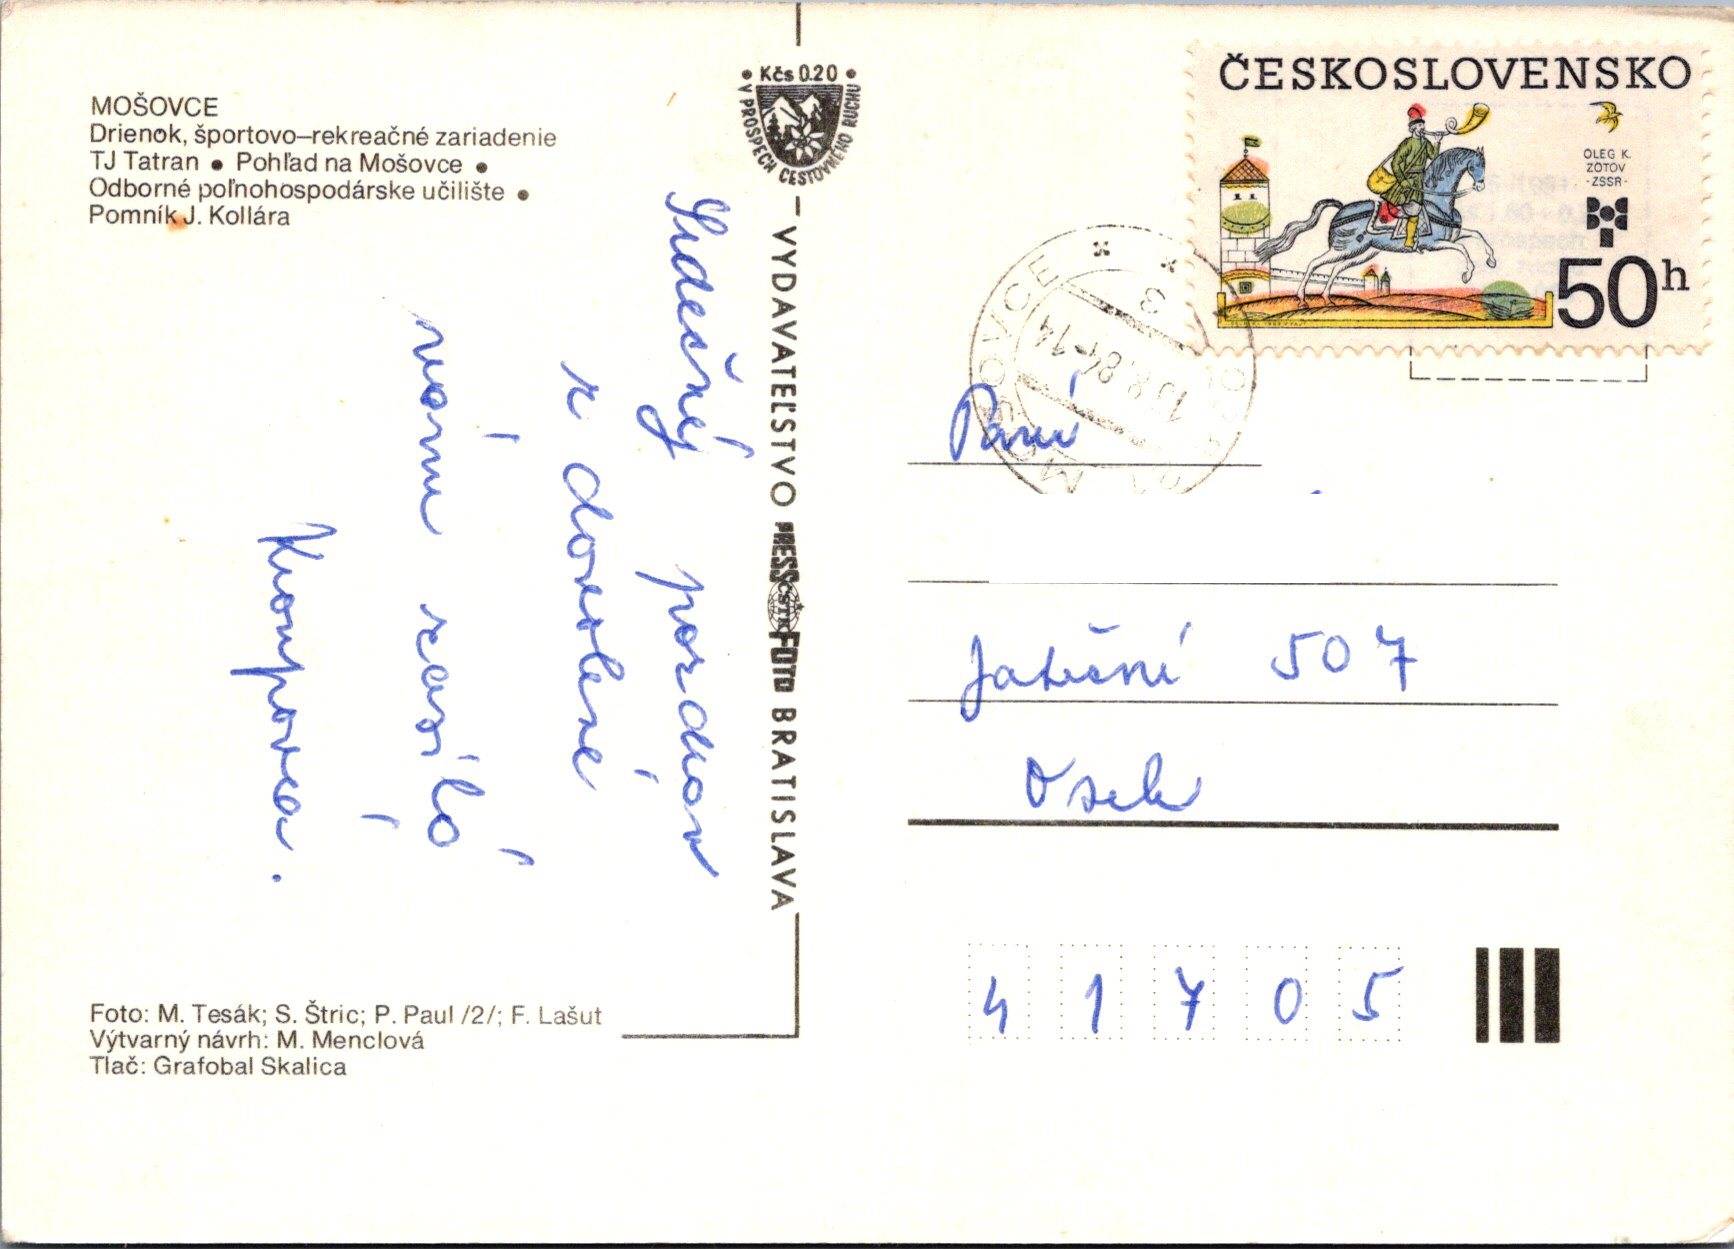 MOŠOVCE
Drienok, športovo–rekreačné zariadenie
TJ Tatran • Pohľad na Mošovce •
Odborné poľnohospodárske učilište •
Pomník J. Kollára
Srdečný pozdrav
z dovolené
vám zasílá
Krompovca.
Foto: M. Tesák; S. Štric; P. Paul /2/; F. Lašut
Výtvarný návrh: M. Menclová
Tlač: Grafobal Skalica
• Kčs 0.20 •
V PROSPECH CESTOVNÉHO RUCHU
VYDAVATEĽSTVO PRESSFOTO BRATISLAVA
ČSTK
ČESKOSLOVENSKO
OLEG K.
ZOTOV
-ZSSR-
50h
MOŠOVCE
3
.8.84-14
Paní
Jateční 507
Osek
41705